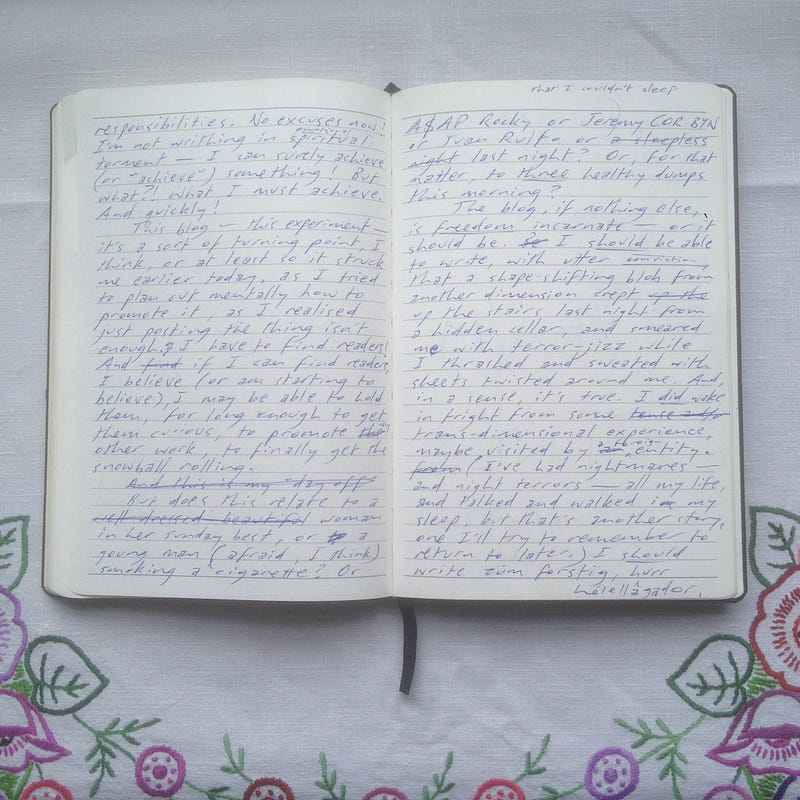 responsibilities. No excuses now!
I'm not writhing in spiritual
torment — I can surely achieve
(or "achieve") something! But
what?! What I must achieve.
And quickly!
This blog — this experiment —
it's a sort of turning point, I
think, or at least so it struck
me earlier today, as I tried
to plan out mentally how to
promote it, as I realised
just posting the thing isn't
enough; I have to find readers!
And find if I can find readers,
I believe (or am starting to
believe), I may be able to hold
them, for long enough to get
them curious, to promote
other work, to finally get the
snowball rolling.
And this is my "day off"
But does this relate to a
well-dressed beautiful woman
in her sunday best, or a
young man (afraid, I think)
smoking a cigarette? Or
that I couldn't sleep
A$AP Rocky or Jeremy CORBYN
or Juan Rulfo or a sleepless
night last night? Or, for that
matter, to three healthy dumps
this morning?
The blog, if nothing else,
is freedom incarnate — or it
should be. So I should be able
to write, with utter conviction,
that a shape-shifting blob from
another dimension crept up the
up the stairs last night from
a hidden cellar, and smeared
me with terror-jizz while
I thrashed and sweated with
sheets twisted around me. And,
in a sense, it's true. I did wake
in fright from some tense and/or
trans-dimensional experience,
maybe visited by an foreign entity.
from (I've had nightmares —
and night terrors — all my life,
and talked and walked in my
sleep, but that's another story,
one I'll try to remember to
return to later.) I should
write züm forstig, hurr
helellâgador,